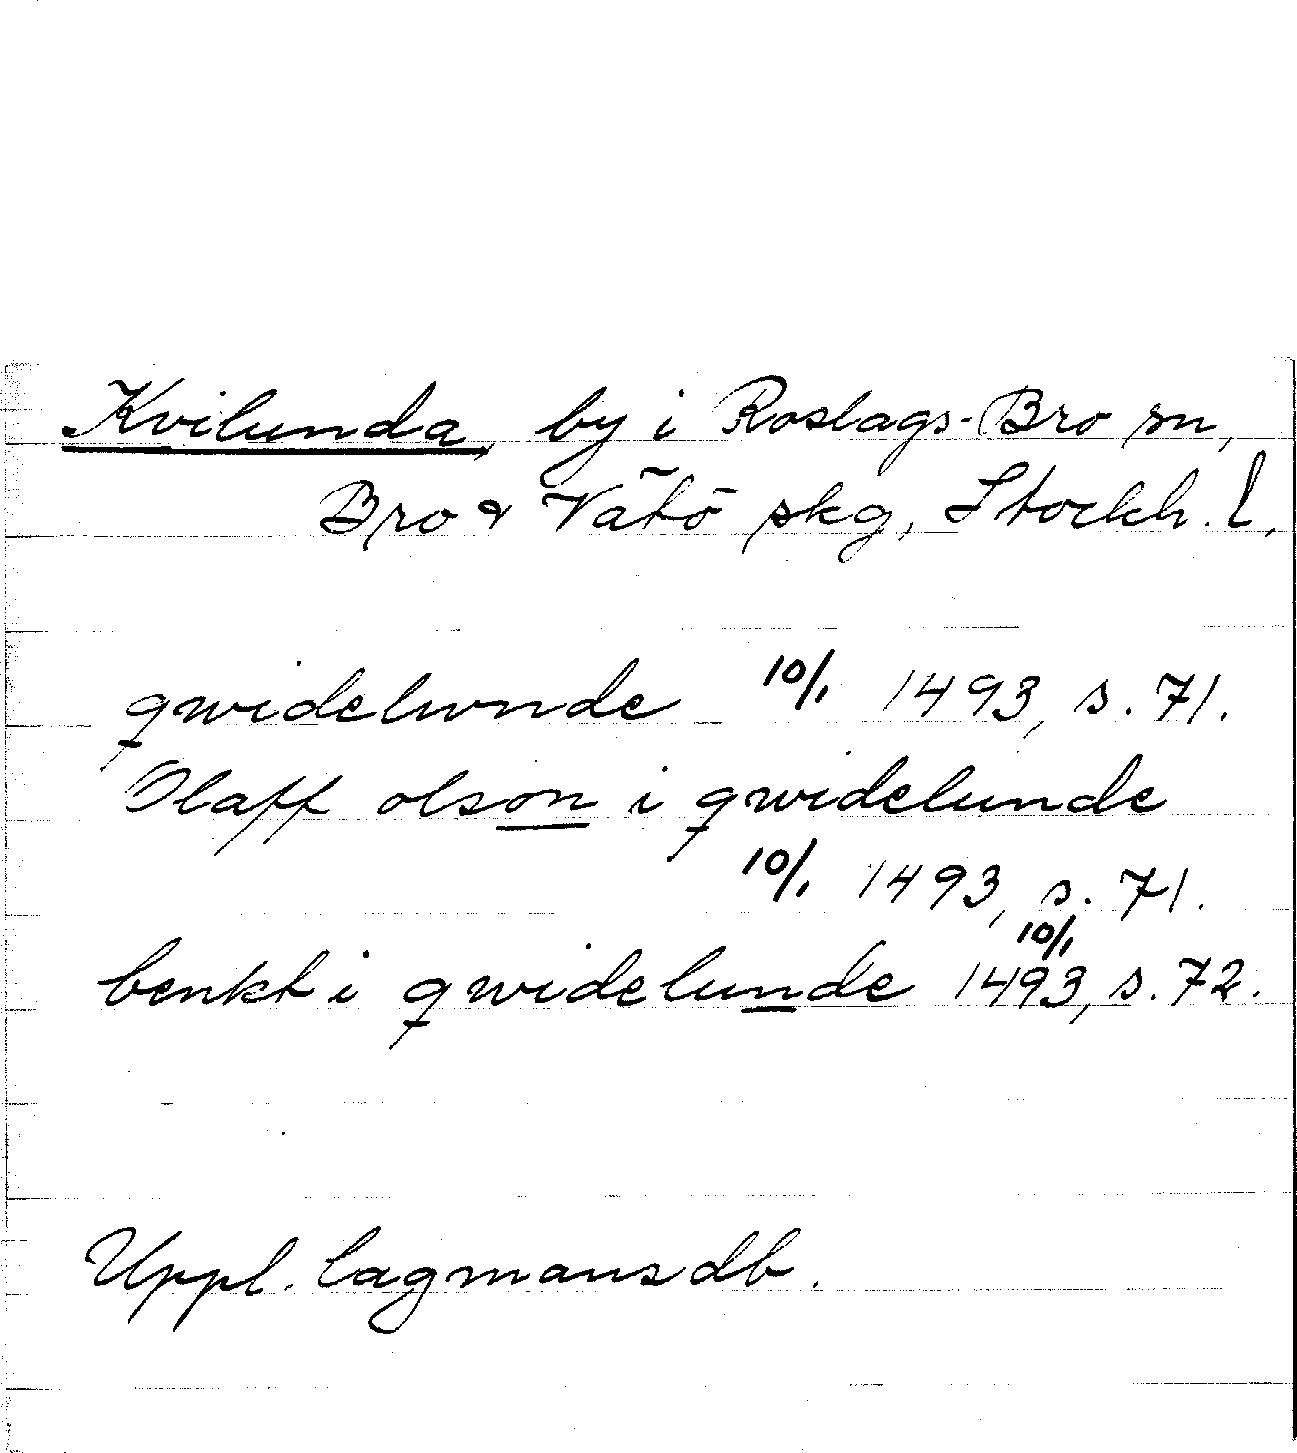 Kvilunda, by i Roslags-Bro sn,
Bro & Vätö skg, Stockh. l.
qwidelunde 10/1 1493, s. 71.
Olaff olson i qwidelunde
10/1 1493, s. 71.
benkt i qwidelunde 10/1 1493, s. 72.
Uppl. lagmansdb.